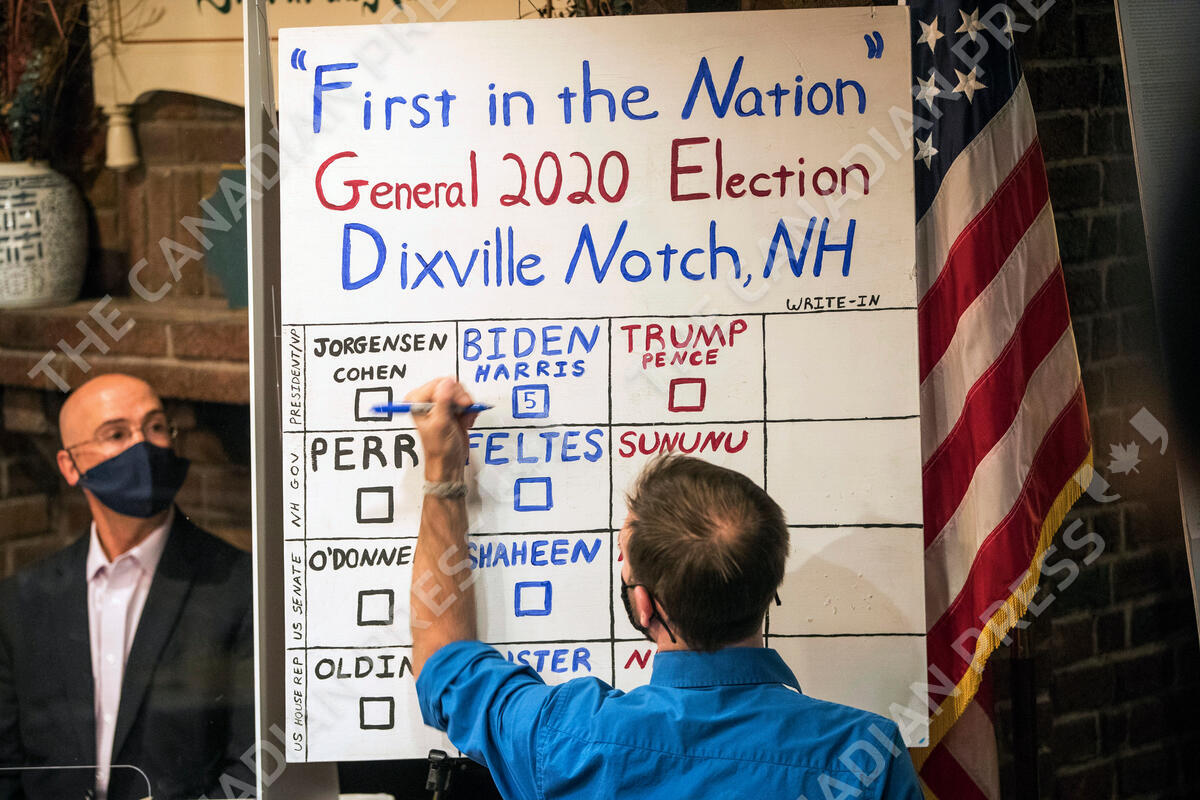 "First in the Nation"
General 2020 Election
Dixville Notch, NH
WRITE-IN
PRESIDENT/VP
JORGENSEN
COHEN
BIDEN
HARRIS
5
TRUMP
PENCE
NH GOV
PERR
FELTES
SUNUNU
US SENATE
O'DONNE
SHAHEEN
US HOUSE REP
OLDIN
STER
N
THE CANADIAN PRESS
THE CANADIAN PRESS
THE CANADIAN PRESS
CANADIAN PRESS